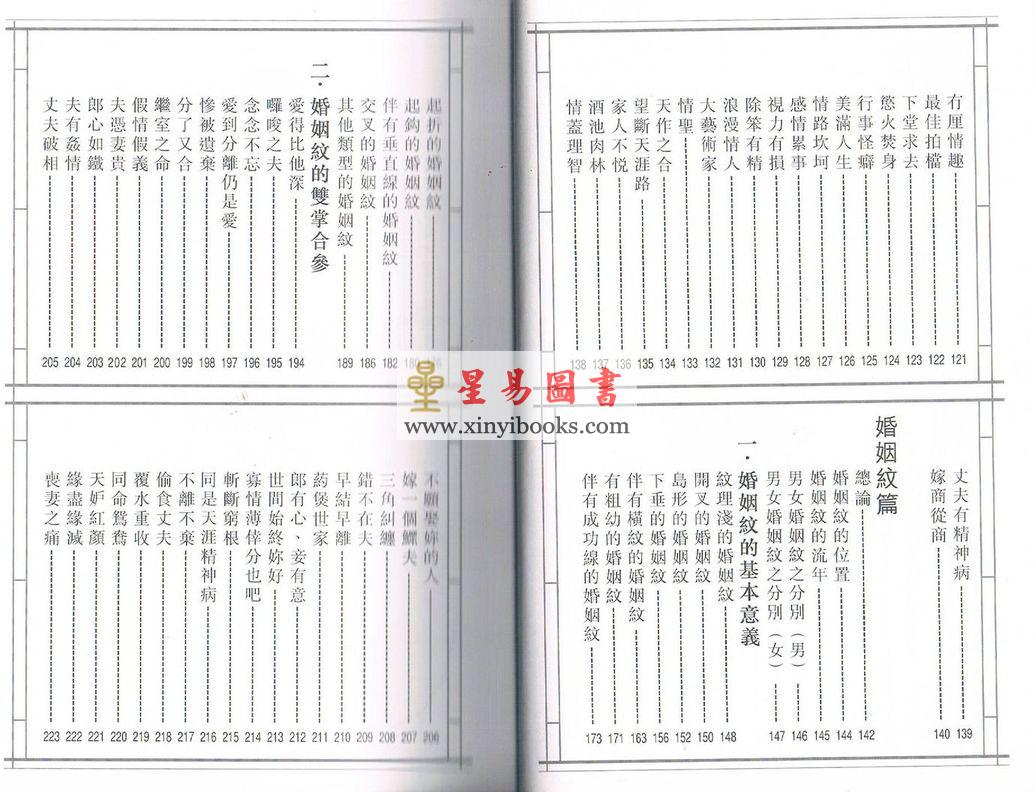 冇厘情趣 121
最佳拍檔 122
下堂求去 123
慾火焚身 124
行事怪癖 125
美滿人生 126
情路坎坷 127
感情累事 128
視力有損 129
除笨有精 130
浪漫情人 131
大藝術家 132
情聖 133
天作之合 134
望斷天涯路 135
家人不悦 136
酒池肉林 137
情蓋理智 138
丈夫有精神病 139
嫁商從商 140
婚姻紋篇
總論 142
婚姻紋的位置 144
婚姻紋的流年 145
男女婚姻紋之分別(男) 146
男女婚姻紋之分別(女) 147
一·婚姻紋的基本意義
紋理淺的婚姻紋 148
開叉的婚姻紋 150
島形的婚姻紋 152
下垂的婚姻紋 156
伴有橫紋的婚姻紋 163
有粗幼的婚姻紋 171
伴有成功線的婚姻紋 173
起折的婚姻紋
起鈎的婚姻紋 180
伴有垂直線的婚姻紋 182
交叉的婚姻紋 186
其他類型的婚姻紋 189
二·婚姻紋的雙掌合參
愛得比他深 194
囉唆之夫 195
念念不忘 196
愛到分離仍是愛 197
慘被遺棄 198
分了又合 199
繼室之命 200
假情假義 201
夫憑妻貴 202
郎心如鐵 203
夫有姦情 204
丈夫破相 205
不願娶妳的人 206
嫁一個鰥夫 207
三角糾纏 208
錯不在夫 209
早結早離 210
葯煲世家 211
郎有心、妾有意 212
世間始終妳好 213
寡情薄倖分也吧 214
斬斷窮根 215
同是天涯精神病 216
不離不棄 217
偷食丈夫 218
覆水重收 219
同命鴛鴦 220
天妒紅顏 221
緣盡緣滅 222
喪妻之痛 223
星易圖書
www.xinyibooks.com